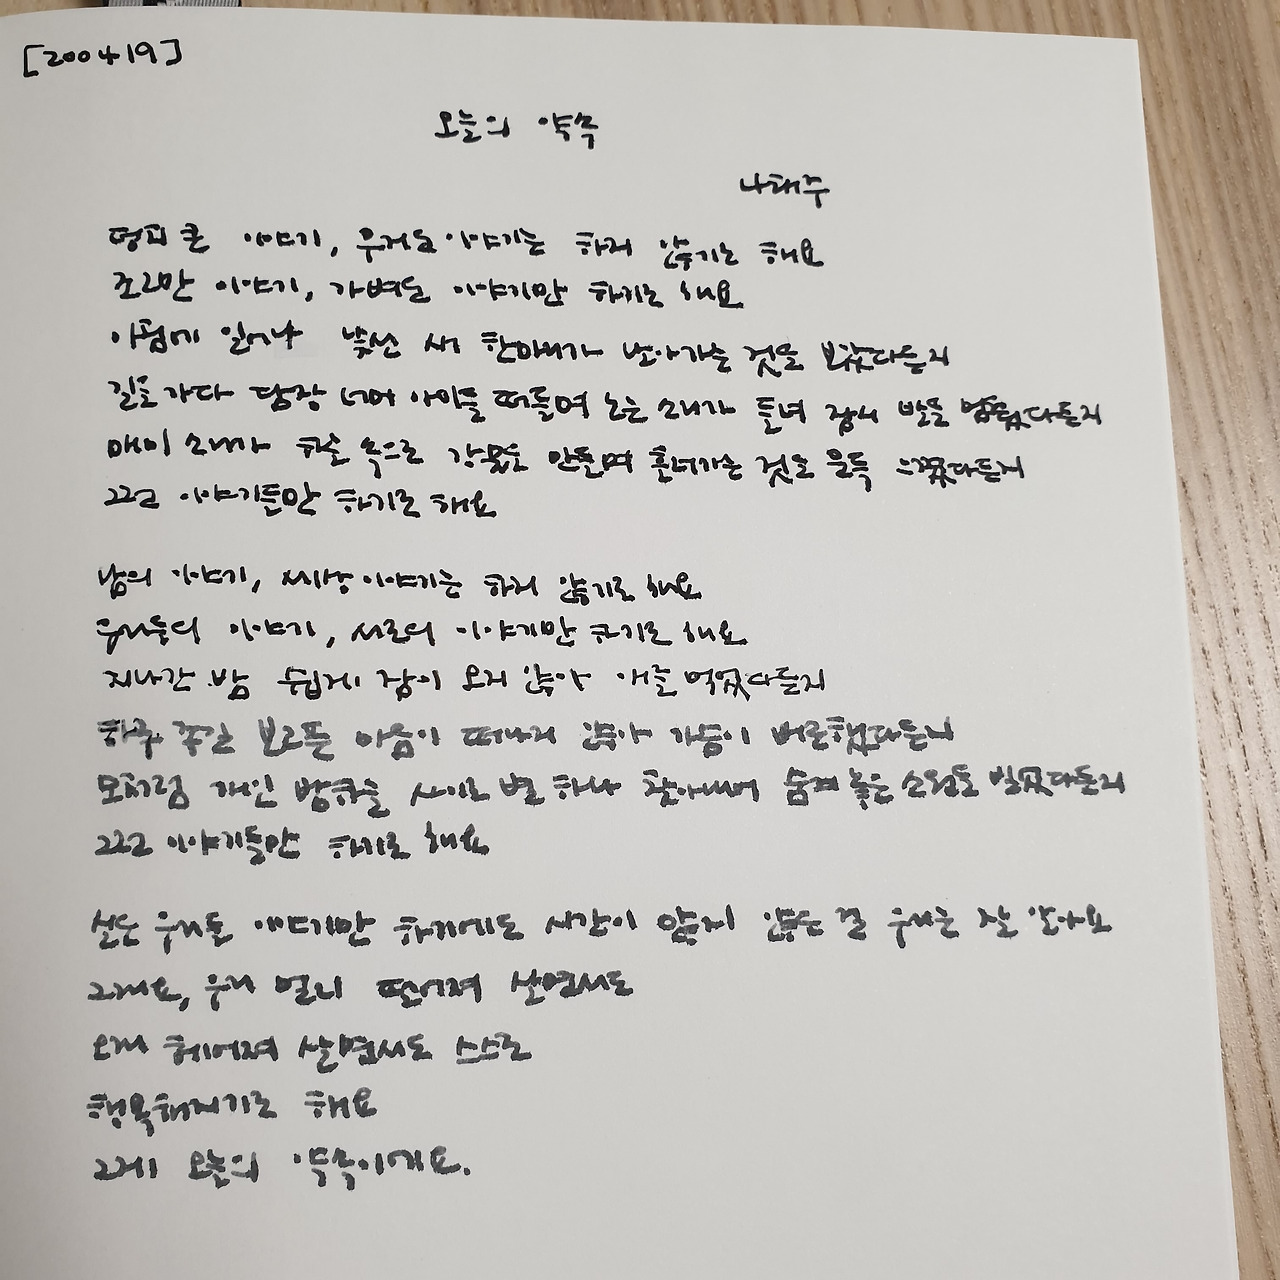 [200419]
오늘의 약속
나태주
덩치 큰 이야기, 무거운 이야기는 하지 않기로 해요
조그만 이야기, 가벼운 이야기만 하기로 해요
아침에 일어나 낯선 새 한마리가 날아가는 것을 보았다든지
길을 가다 담장 너머 아이들 떠들며 노는 소리가 들려 잠시 발을 멈췄다든지
매미 소리가 하늘 속으로 강물을 만들며 흘러가는 것을 문득 느꼈다든지
그런 이야기들만 하기로 해요
남의 이야기, 세상 이야기는 하지 않기로 해요
우리들의 이야기, 서로의 이야기만 하기로 해요
지나간 밤 쉽게 잠이 오지 않아 애를 먹었다든지
하루 종일 보고픈 마음이 떠나지 않아 가슴이 뻐근했다든지
모처럼 개인 밤하늘 사이로 별 하나 찾아내어 숨겨 놓은 소원을 빌었다든지
그런 이야기들만 하기로 해요
실은 우리들 이야기만 하기에도 시간이 많지 않은 걸 우리는 잘 알아요
그래요, 우리 멀리 떨어져 살면서도
오래 헤어져 살면서도 스스로
행복해지기로 해요
그게 오늘의 약속이에요.